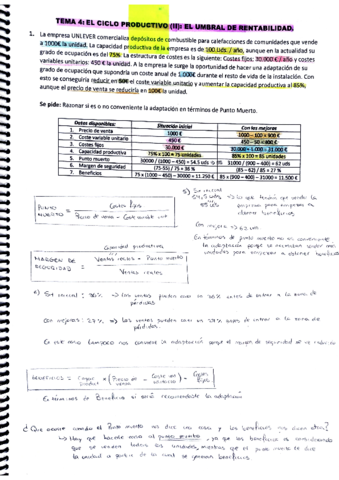 TEMA 4: EL CICLO PRODUCTIVO (II): EL UMBRAL DE RENTABILIDAD.
1. La empresa UNLEVER comercializa depósitos de combustible para calefacciones de comunidades que vende
a 1000€ la unidad. La capacidad productiva de la empresa es de 100 Uds./ año, aunque en la actualidad su
grado de ocupación es del 75%. La estructura de costes es la siguiente: Costes fijos: 30.000 € / año y costes
variables unitarios: 450 € la unidad. A la empresa le surge la oportunidad de hacer una adaptación de su
grado de ocupación que supondría un coste anual de 1.000€ durante el resto de vida de la instalación. Con
esto se conseguiría reducir en 50€ el coste variable unitario y aumentar la capacidad productiva al 85%;
aunque el precio de venta se reduciría en 100€ la unidad.
Se pide: Razonar si es o no conveniente la adaptación en términos de Punto Muerto.
Datos disponibles: Situación inicial Con las mejoras
1. Precio de venta 1000 € 1000 – 100 = 900 €
2. Coste variable unitario 450 € 450 – 50 = 400 €
3. Costes fijos 30.000€ 30.000 + 1.000 = 31.000 €
4. Capacidad productiva 75% x 100 = 75 unidades 85% x 100 = 85 unidades
5. Punto muerto 30000 / (1000 – 450) = 54,5 uds 31000 / (900 – 400) = 62 uds
6. Margen de seguridad (75-55) / 75 = 36 % (85 – 62) / 85 = 27 %
7. Beneficios 75 x (1000 – 450) – 30000 = 11.250 € 85 x (900 – 400) - 31000 = 11.500 €
5) Sit inicial
54,5 uds
55 uds
PUNTO MUERTO = Costes fijos
Precio de venta - Coste variable unit
Con mejora → 62 uds
En términos de punto muerto no es conveniente
la adaptación porque se necesitan vender más
unidades para empezar a obtener beneficio
Capacidad productiva
MARGEN DE SEGURIDAD = Ventas totales - Punto muerto
Ventas totales
6) Sit inicial: 36% → Las ventas pueden caer un 36% antes de entrar a la zona de
pérdidas
Con mejoras: 27% → Las ventas pueden caer un 27% antes de entrar a la zona de
pérdidas.
En este caso tampoco nos conviene la adaptación porque el margen de seguridad se ve reducido
BENEFICIOS = × (Precio de venta - Coste var unitario) - Costes fijos
En términos de Beneficio si sería recomendable la adaptación
¿Que ocurre cuando el Punto muerto nos dice una cosa y los beneficios nos dicen otra?
↳ Hay que hacerle caso al punto muerto, ya que los beneficios
que se venden todas las unidades, mientras que el punto muerto te dice
la unidad a partir de la cual se generan beneficios